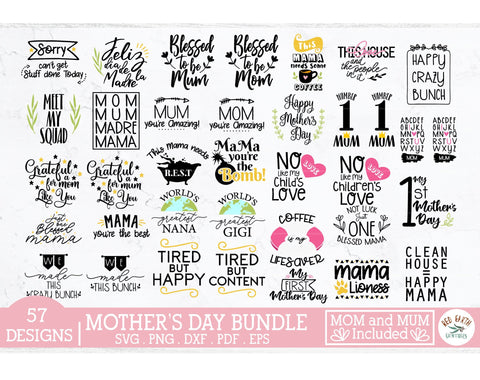 Sorry
can't get
Stuff done Today
Feliz
dia de la
Madre
Blessed
to be
Mum
Blessed
to be
Mom
This
MAMA
needs some
COFFEE
THIS HOUSE
and the
people
in it
HAPPY
CRAZY
BUNCH
MEET
MY
SQUAD
MOM
MUM
MADRE
MAMA
MUM
you're Amazing!
MOM
you're Amazing!
Happy
Mother's
Day
NUMBER
1
MUM
NUMBER
1
MUM
ABCDEF
MUM
ABCDEF
Grateful
for
mom
Like You
Grateful
for
mum
Like You
This Mama needs
R.E.S.T
MaMa
you're
the
Bomb!
NO
LOVE
like My
Child's
Love
NO
LOVE
like My
Children's
LOVE
NOT LUCKY
Just
ONE
BLESSED MAMA
1
My
1st
Mother's
Day
Just
Blessed
mama
MAMA
you're the best
WORLD'S
greatest
NANA
WORLD'S
greatest
GIGI
COFFEE
is my
LIFESAVER
WE
made
THIS CRAZY BUNCH
WE
made
THIS BUNCH
TIRED
BUT
HAPPY
TIRED
BUT
CONTENT
My
FIRST
Mother's Day
mama
Lioness
CLEAN
HOUSE
=
HAPPY
MAMA
57
DESIGNS
MOTHER'S DAY BUNDLE
SVG . PNG . DXF . PDF . EPS
MOM and MUM
Included
RED EARTH